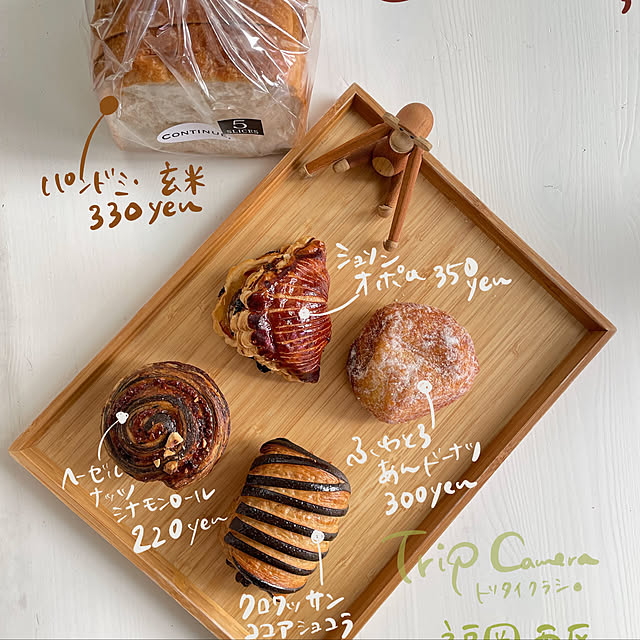 CONTINUE.
5
SLICES
パンドミ・玄米
330yen
ショソン
オポム 350
yen
ふわとろ
あんドーナツ
300yen
ヘーゼル
ナッツ
シナモンロール
220yen
クロワッサン
ココアショコラ
Trip Camera
トリタイクラシ。